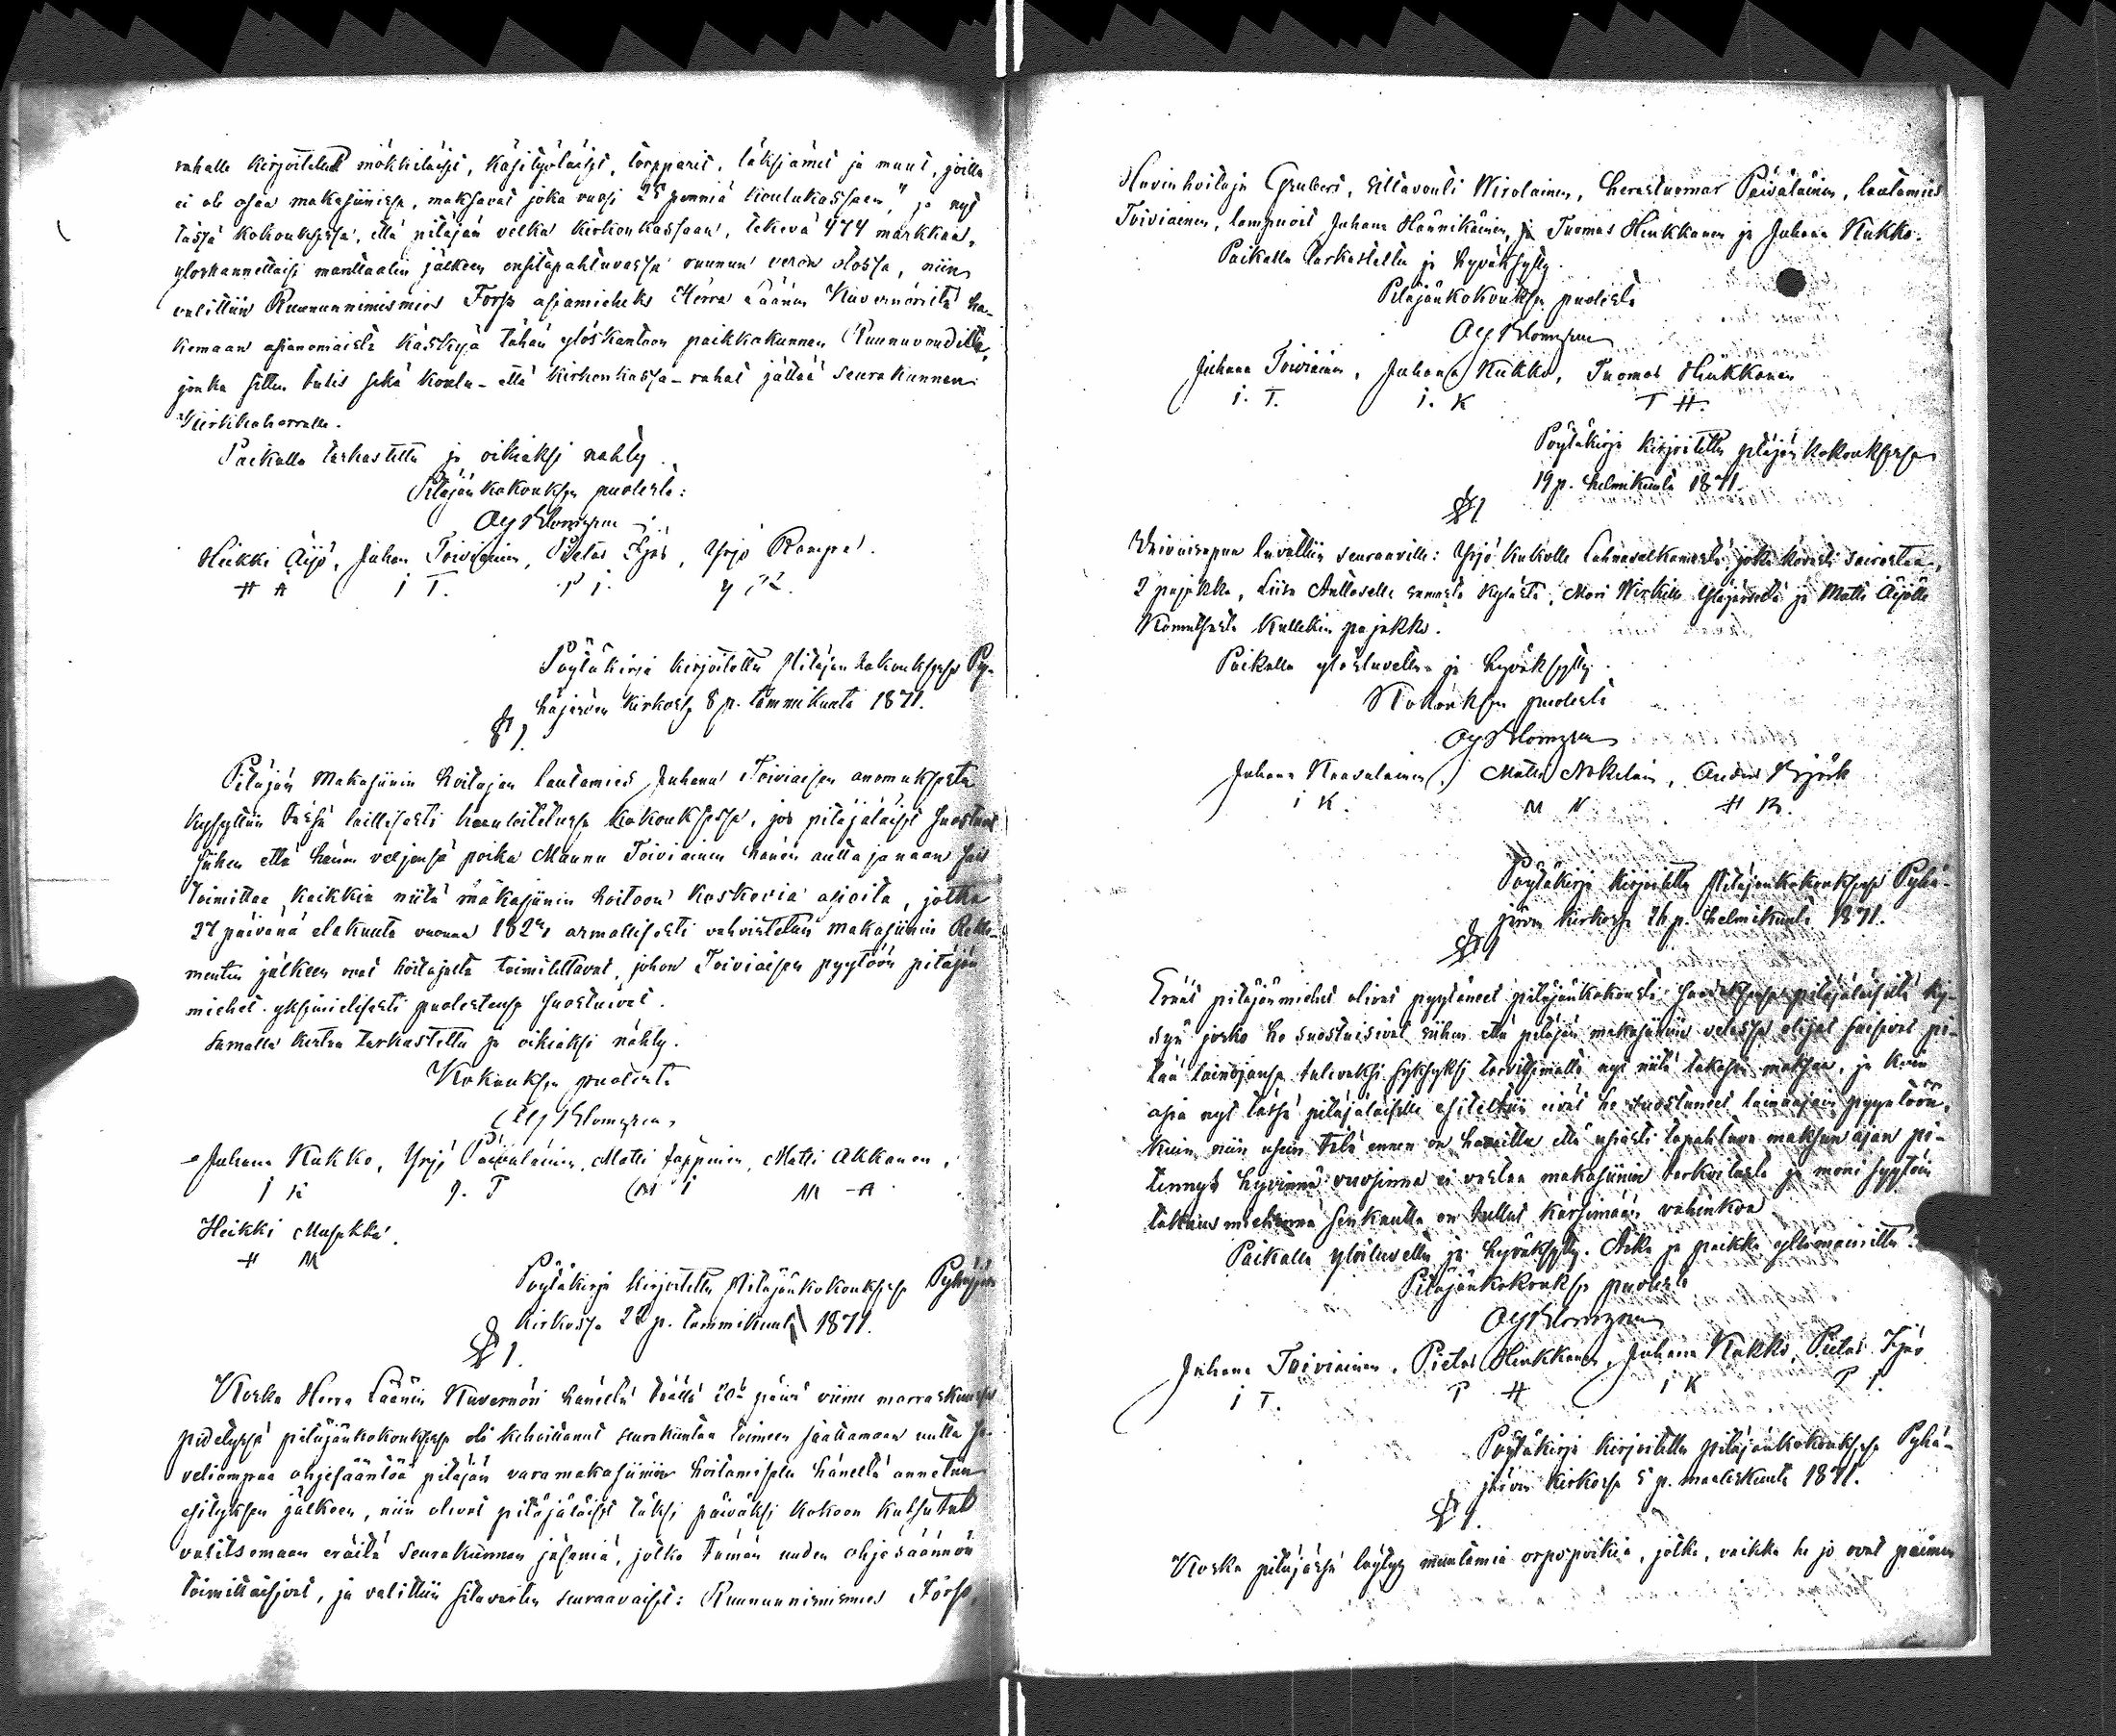 rahalle kirjoitetut mökkiläiset, käsityöläiset, torpparit, läksiämet ja muut, joilla
ei ole osaa makasiinissa, maksavat joka vuosi 25 penniä koulukassaan," ja nyt
tässä kokouksessa, että pitäjän velka kirkonkassaan, tekevä 474 markkaa,
yloskannettaisi manttaalin jälkeen ensitapahtuvassa ruunun veron otossa, niin
valittiin Ruununnimismies Forss asiamieheksi Herra Läänin Kuvernöriltä ha-
kemaan asianomaista käskyä tähän ylöskantoon paikkakunnan Ruununvoudille,
jonka sitten tulis sekä koulu- että kirkonkassa-rahat jättää seurakunnan
Kirkkoherralle.
Paikalla tarkastettu ja oikiaksi nähty.
Pitäjänkokouksen puolesta:
Heikki Äijö, Juhana Toiviainen, Pietas Ijäs, Yrjö Rampa.
H Ä I T. P I. Y R.
Pöytäkirja kirjoitettu Pitäjän kokouksessa Py-
häjärven kirkossa 8 p. tammikuuta 1871.
§ 1.
Pitäjän Makasiinin hoitajan lautamies Juhana Toiviaisen anomuksesta
kysyttiin tässä laillisesti kuulutetussa kokouksessa, jos pitäjäläiset suostuvat
siihen että hänen veljensä poika Mannu Toiviainen hänen auttajanaan sais
toimittaa kaikkia niitä makasiinin hoitoon koskevia asioita, jotka
27 päivänä elokuuta vuonna armollisesti vahvistetun makasiinin Regle-
mentin jälkeen ovat hoitajalta toimitettavat, johon Toiviaisen pyytöön pitäjän
miehet yksimielisesti puolestansa suostuivat.
Samalla kertaa tarkastettu ja oikiaksi nähty.
Kokouksen puolesta
Juhana Kukko, Yrjö Päiväläinen, Matti Jäppinen, Matti Akkanen,
J K Y. P M J M A
Heikki Musakka.
H M
Pöytäkirja kirjoitettu Pitäjänkokouksessa Pyhäjärven
kirkossa 22 p. tammikuuta 1871.
§ 1.
Koska Herra Läänin Kuvernöri hänestä täällä 20tä päivä viime marraskuussa
pidetyssä pitäjänkokouksessa oli kehoittanut seurakuntaa toimeen saattamaan uutta so-
veliampaa ohjesääntöä pitäjän varamakasiinin hoitamiselle häneltä annetun
esityksen jälkeen, niin olivat pitäjäläiset täksi päiväksi kokoon kutsutut
valitsemaan eräitä seurakunnan jäseniä, jotka tämän uuden ohjesäännön
toimittaisivat, ja valittiin sitävarten seuraavaiset: Ruununnimismies Forss,
Hovinhoitaja Grubert, Siltavouti Wirolainen, herastuomar Päiväläinen, lautamies
Toiviainen, lampuoit Juhana Hännikäinen, ja Tuomas Hinkkanen ja Juhana Kukko.
Paikalla tarkastettu ja hyväksytty.
Pitäjänkokouksen puolesta
Juhana Toiviainen, Juhana Kukko, Tuomas Hinkkanen
I. T. I. K T H.
Pöytäkirja kirjoitettu pitäjänkokouksessa
19 p. helmikuuta 1871.
§ 1
Waivaisapua luvattiin seuraaville: Yrjö Kukolle Lahnavalkamasta joka kovasti sairastaa,
2 pajakka, Liisa Anttoselle samasta kylästä, Mari Wirkille Ylajärveltä ja Matti Äijölle
Konnitsasta kullekin pajakko.
Paikalla ylösluvettu ja hyväksytty.
Kokouksen puolesta
Juhana Kaavalainen, Matti Nokelain, Anders Björk
I K. M N A B.
Pöytäkirja kirjoitettu Pitäjänkokouksessa Pyhä-
järven kirkossa 26 p. helmikuuta 1871.
§ 1
Eräät pitäjänmiehet olivat pyytäneet pitäjänkokousta saadaksensa pitäjäläisiltä ky-
syä josko he suostuisivat siihen että pitäjän makasiinin velassa olijat saisivat pi-
tää lainojansa tulevaksi syksyksi tarvitsematta nyt niitä takasin maksaa, ja kuin
asia nyt tässä pitäjäläisille esitettiin eivät he suostuneet lainaajain pyyntöön,
kuin niin usein tätä ennen on havaittu että usiasti tapahtuva maksun ajan pi-
tennys hyvinnä vuosinna ei vastaa makasiinin tarkoitusta ja moni syytöin
takausmiehenä senkautta on tullut kärsimään vahinkoa.
Paikalla ylösluvettu ja hyväksytty. Aika ja paikka yllämainittu.
Pitäjänkokouksen puolesta
Juhana Toiviainen, Pietas Hinkkanen, Juhana Kukko, Pietas Ijäs
I T. P H I K P I.
Pöytäkirja kirjoitettu pitäjänkokouksessa Pyhä-
järven kirkossa 5 p. maaliskuuta 1871.
§ 1.
Koska pitäjässä löytyy muutamia orpopoikia, jotka, vaikka he jo ovat paimen